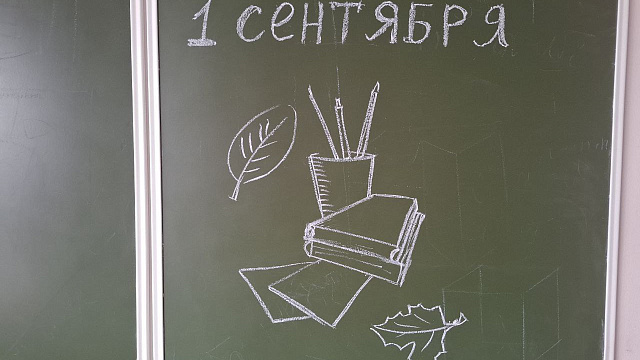 1 СЕНТЯБРЯ